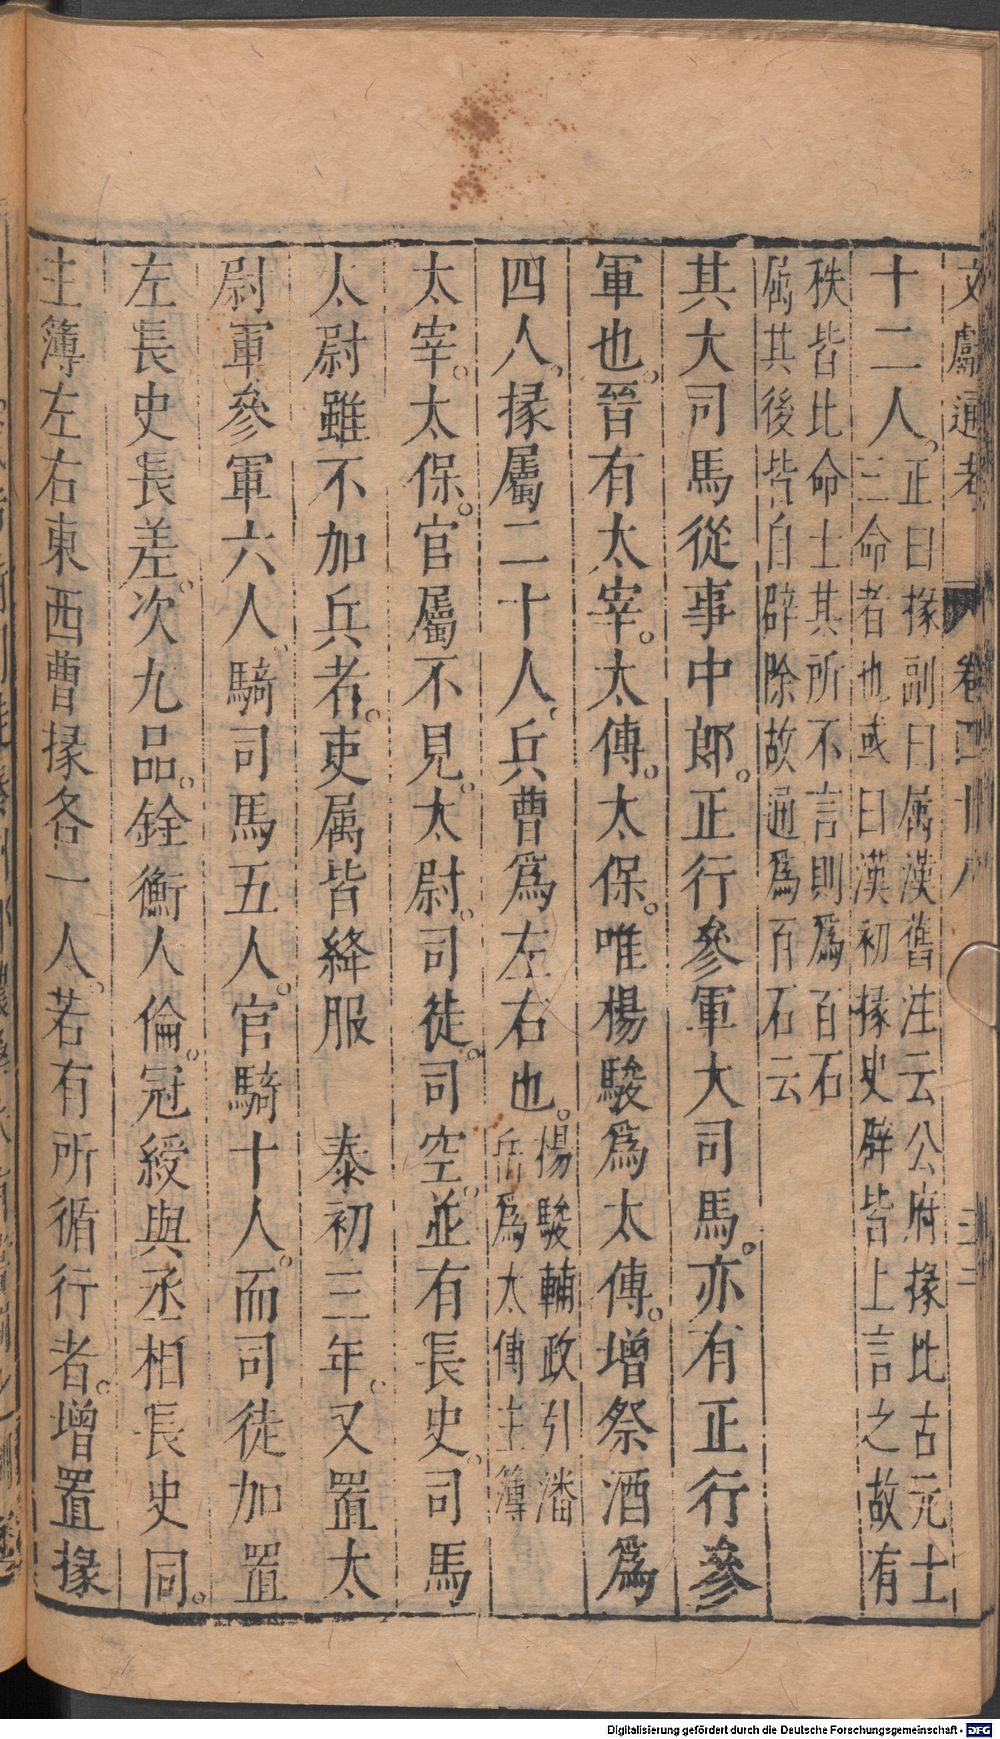 文獻通考 卷四十八
十二人。正曰掾副曰属漢舊注云公府掾比古元士
三命者也或曰漢初掾史辟皆上言之故有
秩皆比命士其所不言則爲百石
属其後皆自辟除故通爲百石云
其大司馬從事中郎。正行參軍大司馬。亦有正行參
軍也。晉有太宰。太傅。太保。唯楊駿爲太傅。增祭酒爲
四人。掾屬二十人。兵曹爲左右也。楊駿輔政引潘
岳爲太傅主簿
太宰。太保。官屬不見。太尉。司徒。司空。並有長史。司馬
太尉雖不加兵者。吏属皆絳服 泰初三年。又置太
尉軍參軍六人。騎司馬五人。官騎十人。而司徒加置
左長史長差。次九品。銓衡人倫。冠綬與丞相長史同。
主簿左右東西曹掾各一人。若有所循行者。增置掾
Digitalisierung gefördert durch die Deutsche Forschungsgemeinschaft - DFG